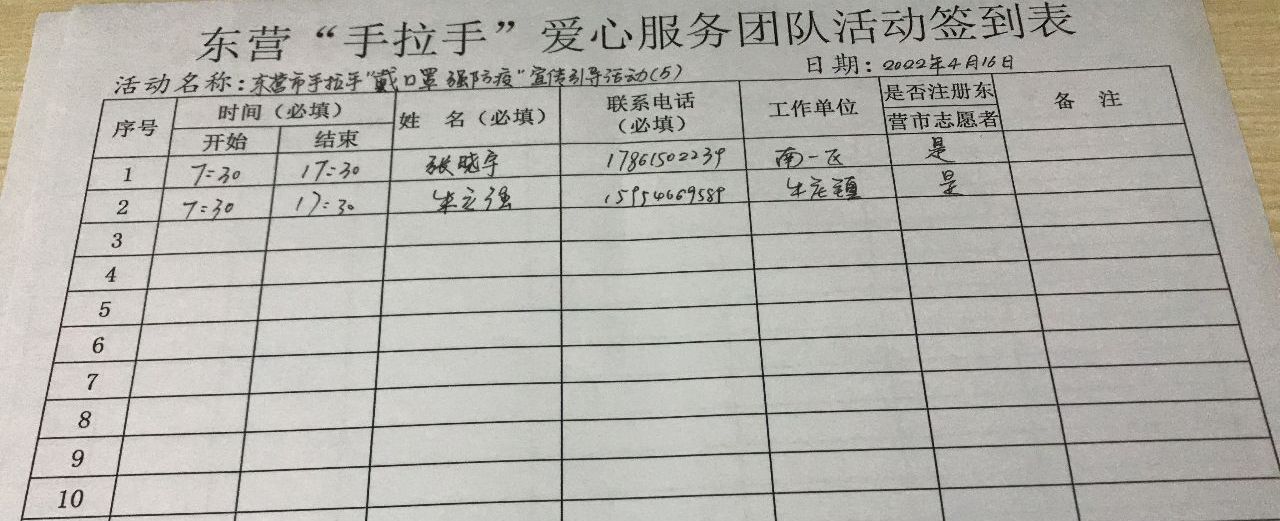 东营“手拉手”爱心服务团队活动签到表
活动名称：东营市手拉手“戴口罩 强防疫”宣传引导活动(5) 日期：2022年4月16日
序号 时间（必填） 姓 名（必填） 联系电话（必填） 工作单位 是否注册东营市志愿者 备 注
开始 结束
1 7:30 17:30 张晓宇 17861502239 南一区 是
2 7:30 17:30 朱立强 15954669589 牛庄镇 是
3
4
5
6
7
8
9
10